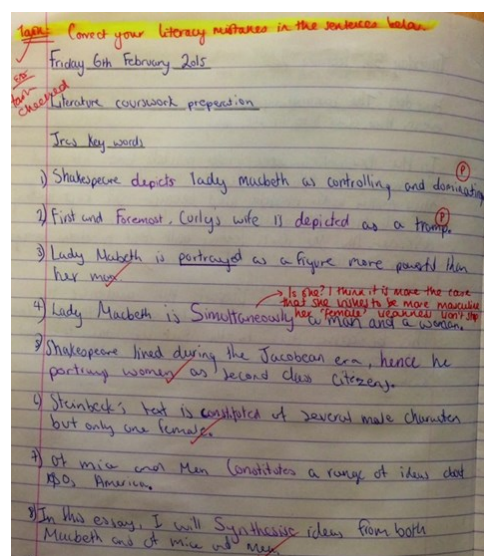 Task: Correct your literacy mistakes in the sentences below.
Friday 6th February 2015
task
checked
Literature coursework preperation
key words
1) Shakespeare depicts lady macbeth as controlling and dominating
P
2) First and Foremost, Curlys wife is depicted as a tramp.
P
3) Lady Mabeth is portrayed as a figure more powerful than
her
Is she? I think it is more the case
that she wishes to be more masculine
her 'female' weakness won't stop
4) Lady Macbeth is Simultaneously a man and a woman.
5) Shakespeare lived during the Jacobean era, hence he
portrays women as second class citezens.
6) Steinbeck's text is constituted of several male characters
but only one female.
7) Of mice and Men Constitutes a range of ideas about
America.
8) In this essay, I will Synthesise ideas from both
Macbeth and of mice and Men